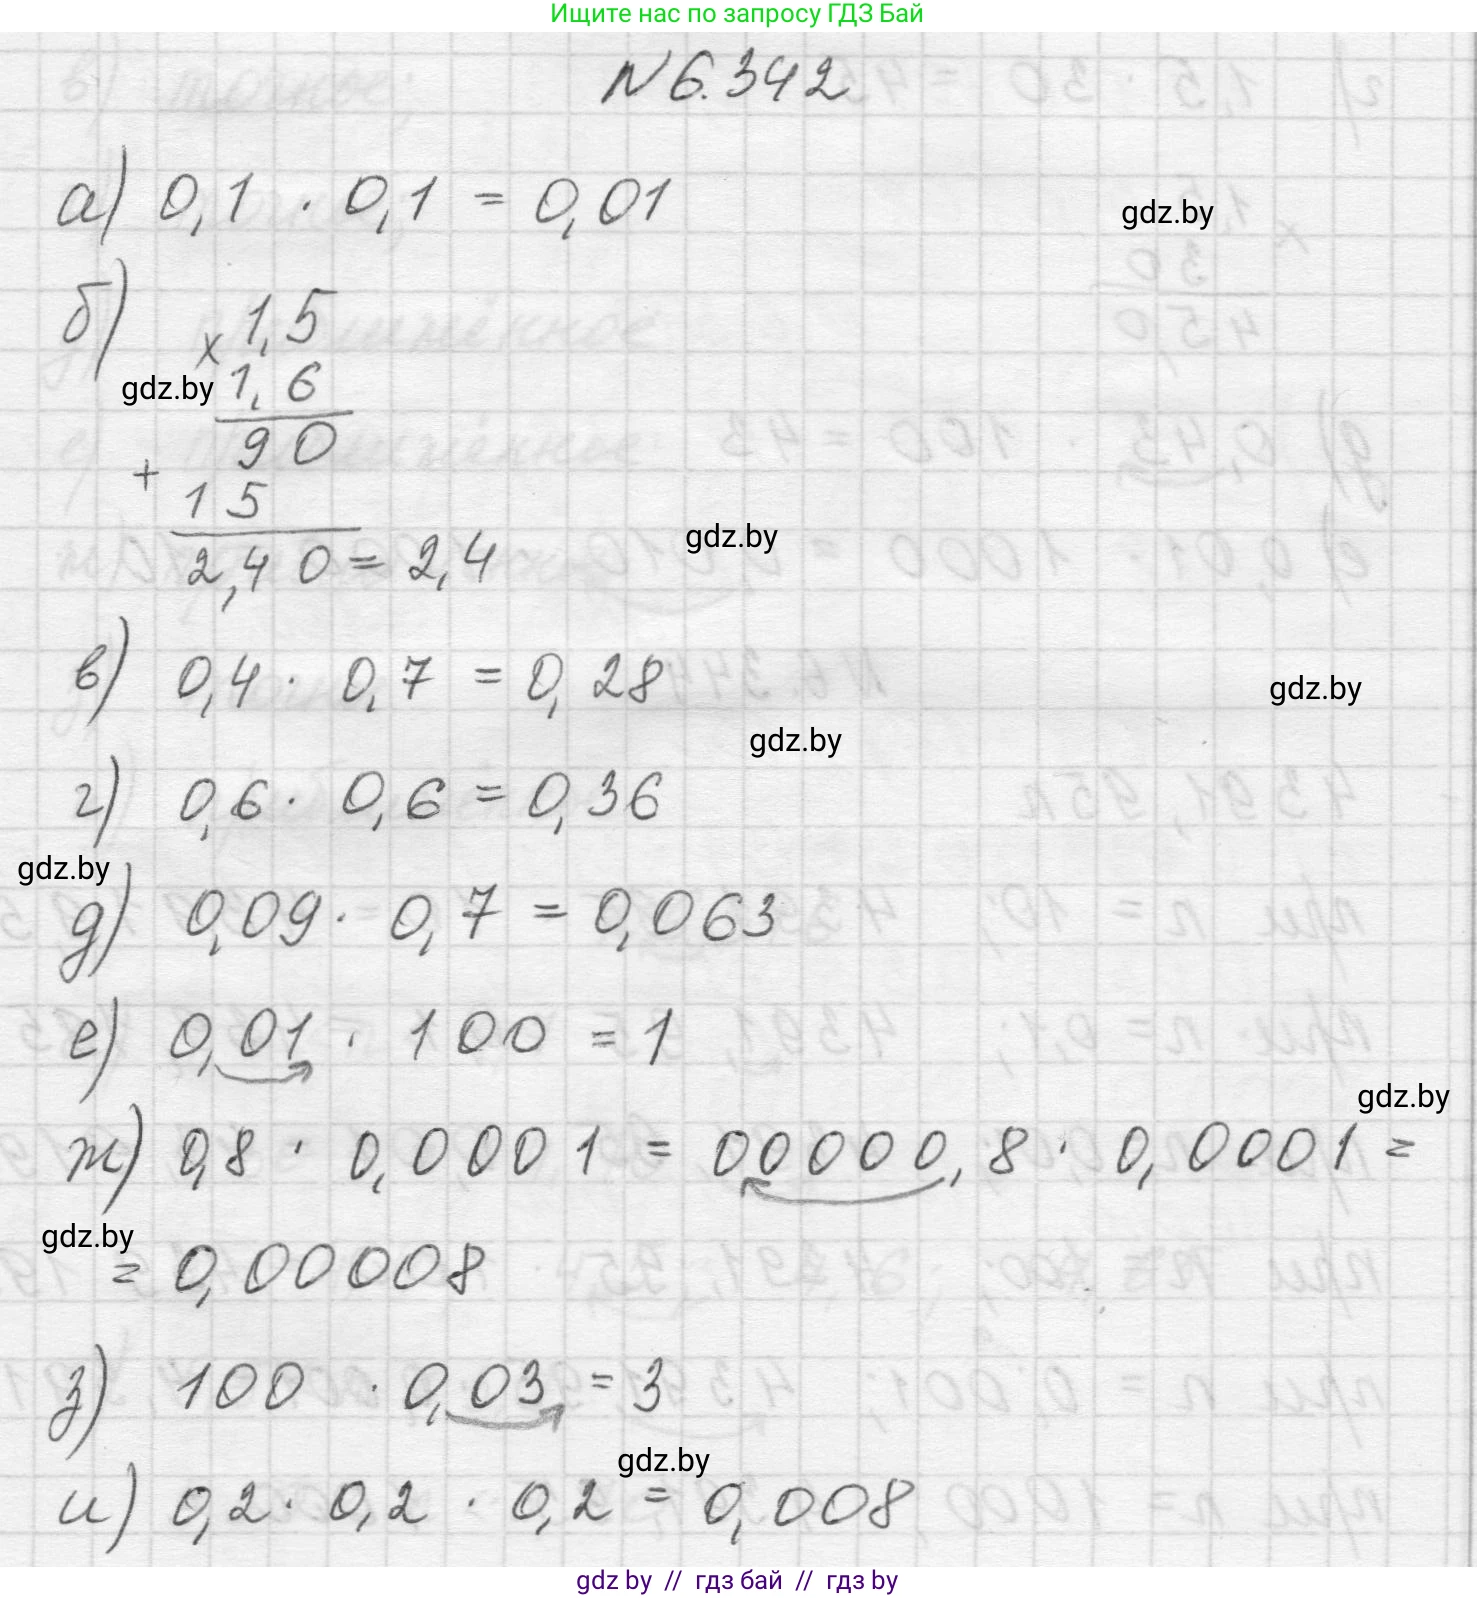 Ищите нас по запросу ГДЗ Бай
№ 6.342
а) 0,1 · 0,1 = 0,01
gdz.by
б) × 1,5
gdz.by 1,6
90
+ 15
2,40 = 2,4
gdz.by
в) 0,4 · 0,7 = 0,28
gdz.by
gdz.by
г) 0,6 · 0,6 = 0,36
gdz.by
д) 0,09 · 0,7 = 0,063
е) 0,01 · 100 = 1
gdz.by
ж) 0,8 · 0,0001 = 00000,8 · 0,0001 =
gdz.by
= 0,00008
з) 100 · 0,03 = 3
gdz.by
и) 0,2 · 0,2 · 0,2 = 0,008
gdz by // гдз бай // гдз by